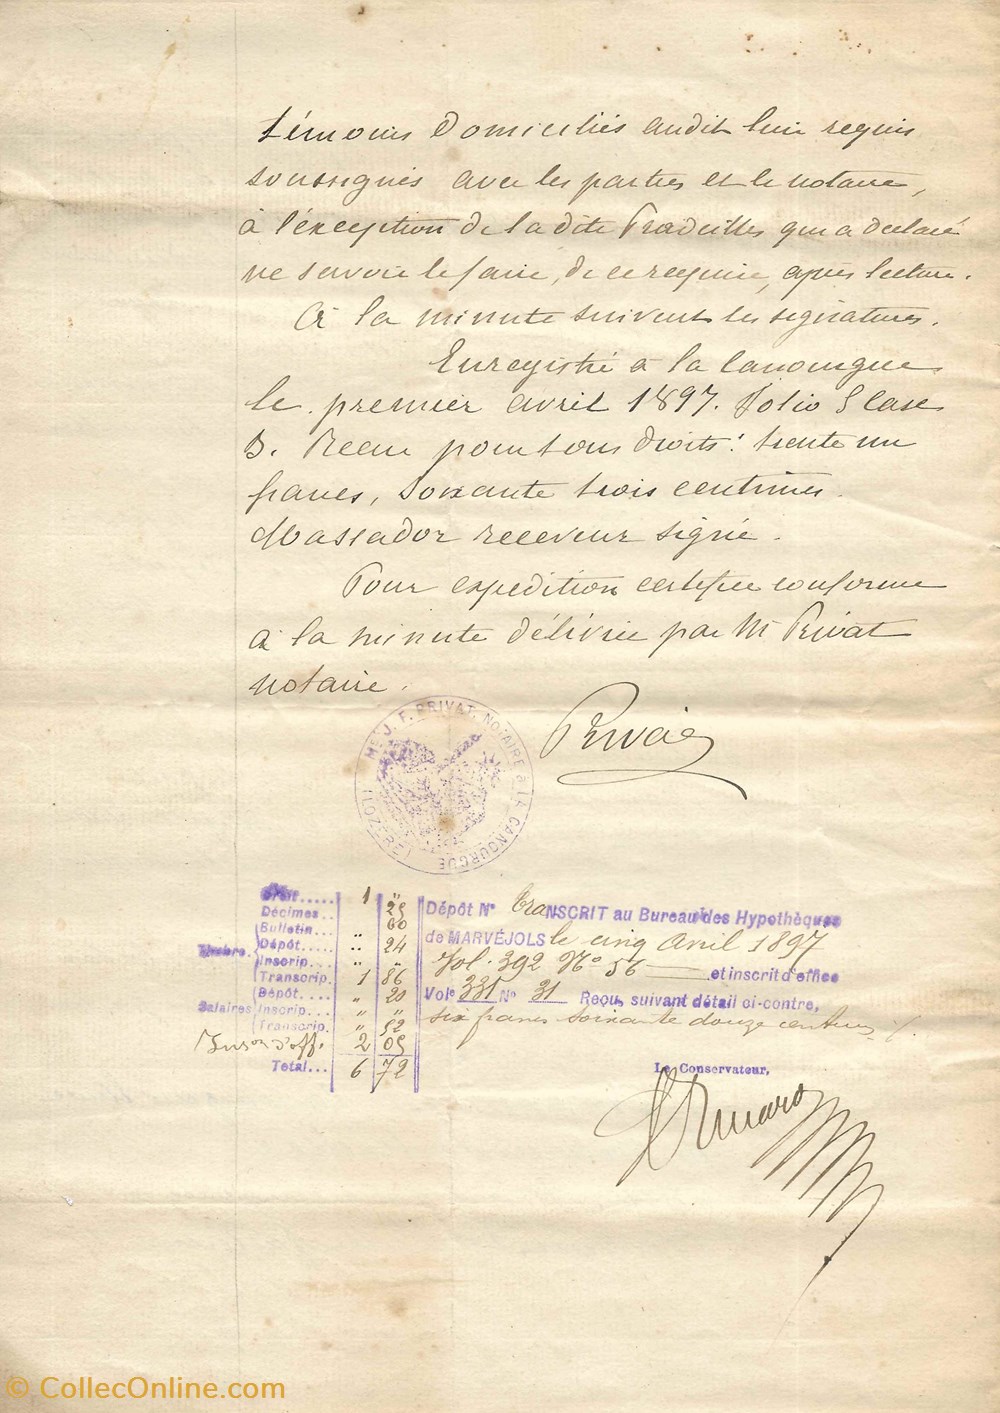 témoins domiciliés audit lieu requis
soussignés avec les parties et le notaire,
à l'exception de la dite Pradeilles qui a déclaré
ne savoir le faire, de ce requise, après lecture.
A la minute suivent les signatures.
Enregistré à la Canourgue
le premier avril 1897. Folio 5 case
3. Reçu pour tous droits: trente un
francs, soixante trois centimes.
Massador receveur signé.
Pour expédition certifiée conforme
à la minute délivrée par Me Privat
notaire.
Privat
Me J. F. PRIVAT, NOTAIRE à LA CANOURGUE (LOZÈRE)
Droit..... 1 "
Décimes.. 25
Bulletin... " 60
Timbre. Dépôt.... " 24
Inscrip... " "
Transcrip. 1 86
Salaires Dépôt.... " 20
Inscrip... " "
Transcrip. " 52
Inson d'off. 2 05
Total... 6 72
Dépôt N° TraNSCRIT au Bureau des Hypothèques
de MARVÉJOLS le cinq Avril 1897
Vol. 392 N° 56 et inscrit d'office
Vole 331 N° 31 Reçu, suivant détail ci-contre,
six francs soixante douze centimes %.
Le Conservateur,
© CollecOnline.com